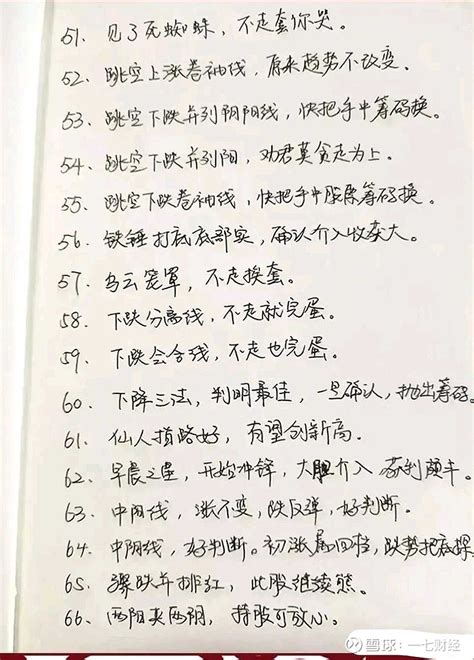 51、见了死蜘蛛，不走套你哭。
52、跳空上涨卷袖线，原来趋势不改变。
53、跳空下跌并列阴阳线，快把手中筹码换。
54、跳空下跌并列阳，劝君莫贪走为上。
55、跳空下跌卷袖线，快把手中股票筹码换。
56、铁锤打底底部实，确认介入收获大。
57、乌云笼罩，不走挨套。
58、下跌分离线，不走就完蛋。
59、下跌会合线，不走也完蛋。
60、下降三法，判明最佳，一旦确认，抛出筹码。
61、仙人指路好，有望创新高。
62、早晨之星，开始冲锋，大胆介入 获利颇丰。
63、中阳线，涨不变，跌反弹，好判断。
64、中阴线，好判断。初涨属回档，跌势把底探
65、骤跌并排红，此股继续熊。
66、两阳夹两阴，持股可放心。
雪球：一七财经